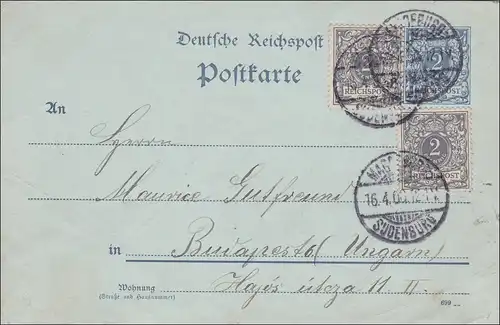 Deutsche Reichspost
Postkarte
2
REICHSPOST
2
2
REICHSPOST
MAGDEBURG
16.4.00
SUDENBURG
An
Herrn
Maurice Gutfreund
in Budapest (Ungarn)
Hajós útcza 11 II.
Wohnung
(Straße und Hausnummer)
699